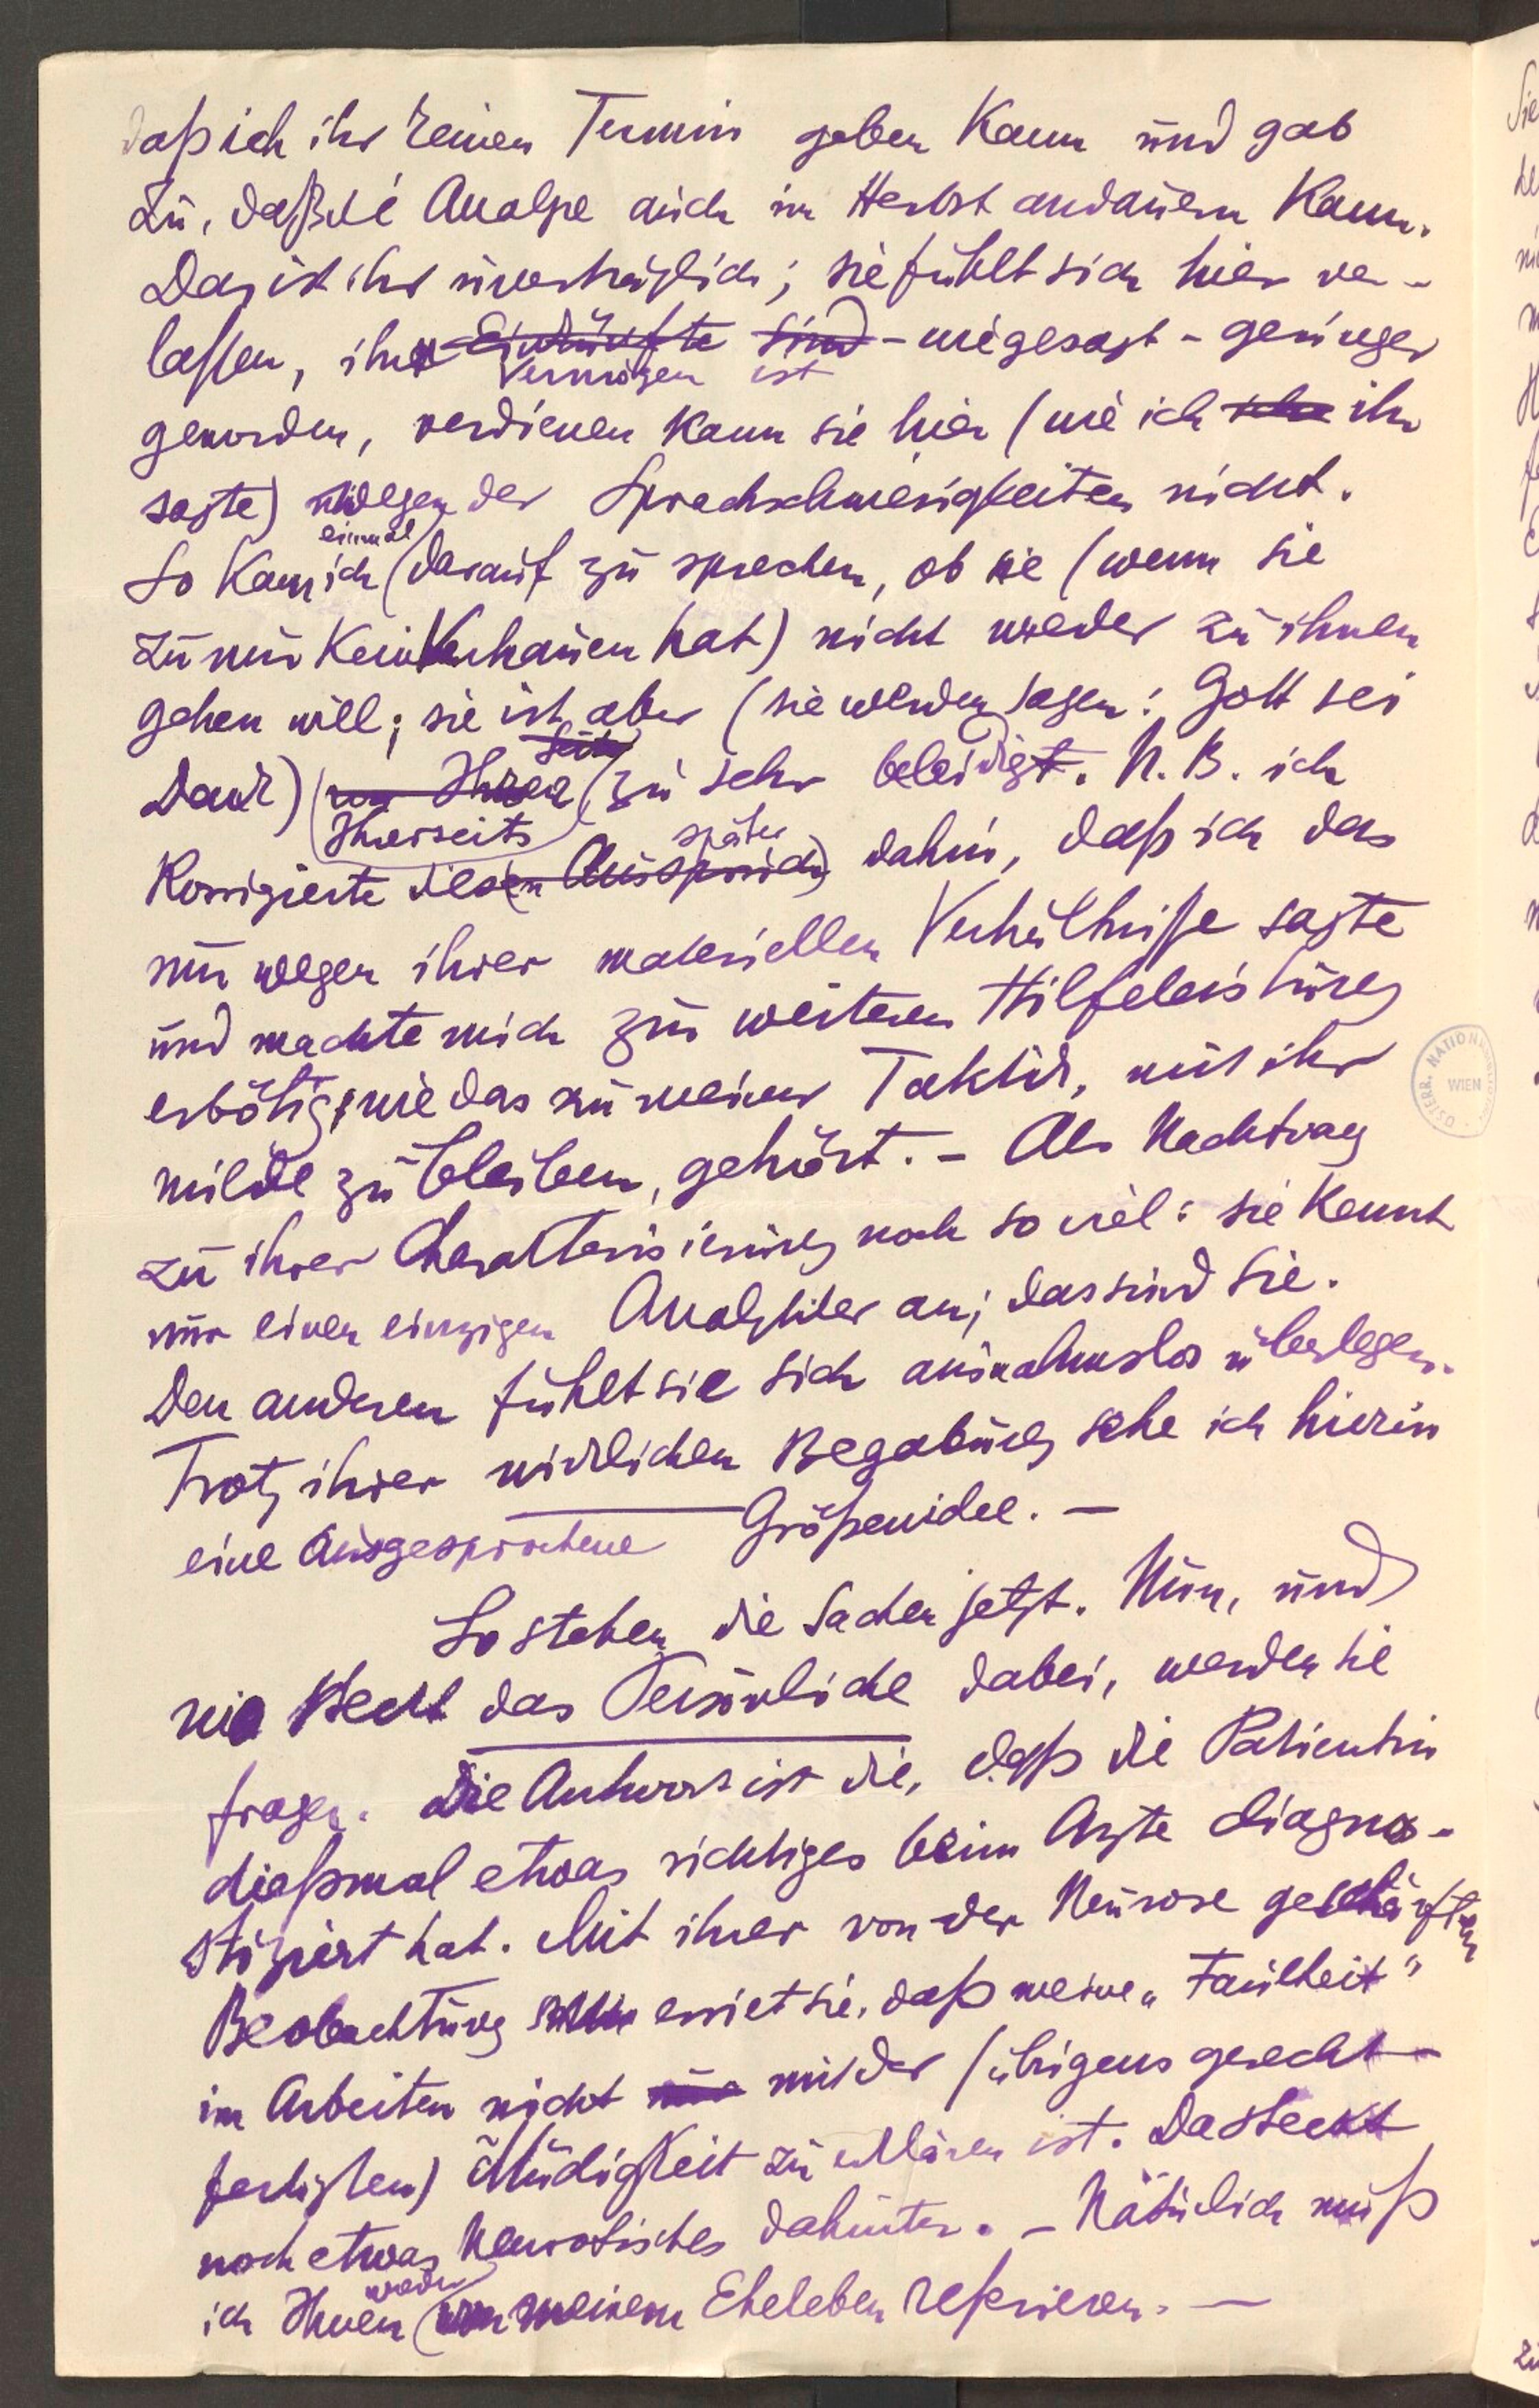 daß ich ihr keinen Termin geben kann und gab
zu, daß die Analyse auch im Herbst andauern kann.
Das ist ihr unerträglich; sie fühlt sich hier ver-
lassen, ihr Einkünfte sind Vermögen ist - wie gesagt - geringer
geworden, verdienen kann sie hier (wie ich ihr
sagte) wegen der Sprachschwierigkeiten nicht.
So kam ich einmal darauf zu sprechen, ob sie (wenn sie
zu mir kein Vertrauen hat) nicht wieder zu ihnen
gehen will; sie ist aber (sie werden sagen: Gott sei
Dank) von Ihnen Ihrerseits zu sehr beleidigt. N.B. ich
korrigierte diesen Ausspruch später dahin, daß ich das
nur wegen ihrer materiellen Verhältnisse sagte
und machte mich zur weiteren Hilfeleistung
erbötig, wie das zu meiner Taktik, mit ihr
milde zu bleiben, gehört. - Als Nachtrag
zu ihrer Charakterisierung noch so viel: sie kennt
nur einen einzigen Analytiker an; das sind Sie.
Den anderen fühlt sie sich ausnahmslos überlegen.
Trotz ihrer wirklichen Begabung sehe ich hierin
eine ausgesprochene Größenidee. —
So stehen die Sachen jetzt. Nun, und
wo steckt das Persönliche dabei, werden sie
fragen. Die Antwort ist die, daß die Patientin
dießmal etwas richtiges beim Arzte diagno-
stiziert hat. Mit ihrer von der Neurose geschärften
Beobachtung erriet sie, daß meine „Faulheit"
im Arbeiten nicht nur mit der (übrigens gerecht-
fertigten) Müdigkeit zu erklären ist. Da steckt
noch etwas Neurotisches dahinter. - Natürlich muß
ich Ihnen wieder von meinem Eheleben referieren. —
ÖSTERR. NATIONALBIBLIOTHEK WIEN